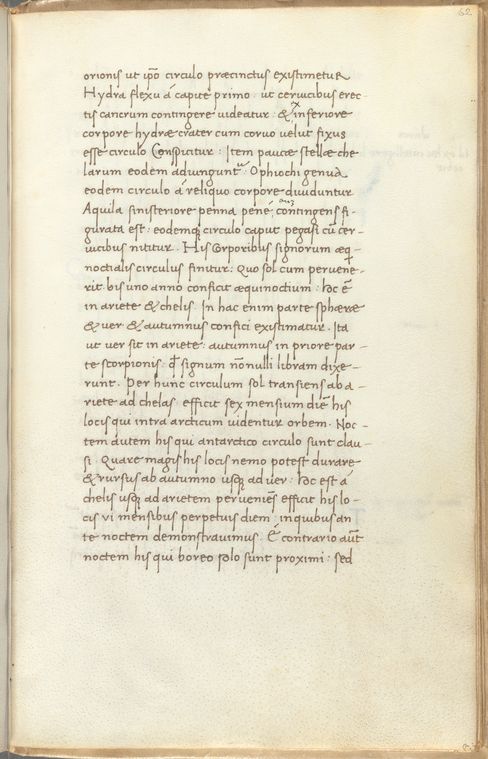 62
orionis ut ip̄o circulo præcinctus existimetur
Hydra flexu á capite primo : ut ceruicibus erec-
tis cancrum contingere uideatur : & inferiore
corpore hydræ crater cum coruo uelut fixus
esse circulo Conspicitur : Item paucæ stellæ che-
larum eodem adiungunt᷑ : Ophiochi genua
eodem circulo a reliquo corpore diuiduntur
Aquila sinisteriore penna pené contingens fi-
gurata est : eodemq; circulo caput pegasi cū cer-
uicibus nititur . His Corporibus signorum æq-
noctialis circulus finitur : Quo sol cum peruene-
rit bis uno anno conficit æquinoctium : hoc ē
in ariete & chelis In hac enim parte sphæræ
& uer & autumnus confici existimatur . Ita
ut uer sit in ariete : autumnus in priore par-
te scorpionis : qđ signum nōnulli libram dixe-
runt . Per hunc circulum sol transiens ab a-
riete ad chelas efficit sex mensium diē his
locis qui intra arcticum uidentur orbem . Noc-
tem autem his qui antarctico circulo sunt clau-
si . Quare magis his locis nemo potest durare
& rursus ab autumno usq; ad uer : hoc est á
chelis usq; ad arietem perueniēs efficit his lo-
cis vi mensibus perpetuis diem : in quibus an
te noctem demonstrauimus . E contrario aut̄
noctem his qui boreo polo sunt proximi : sed